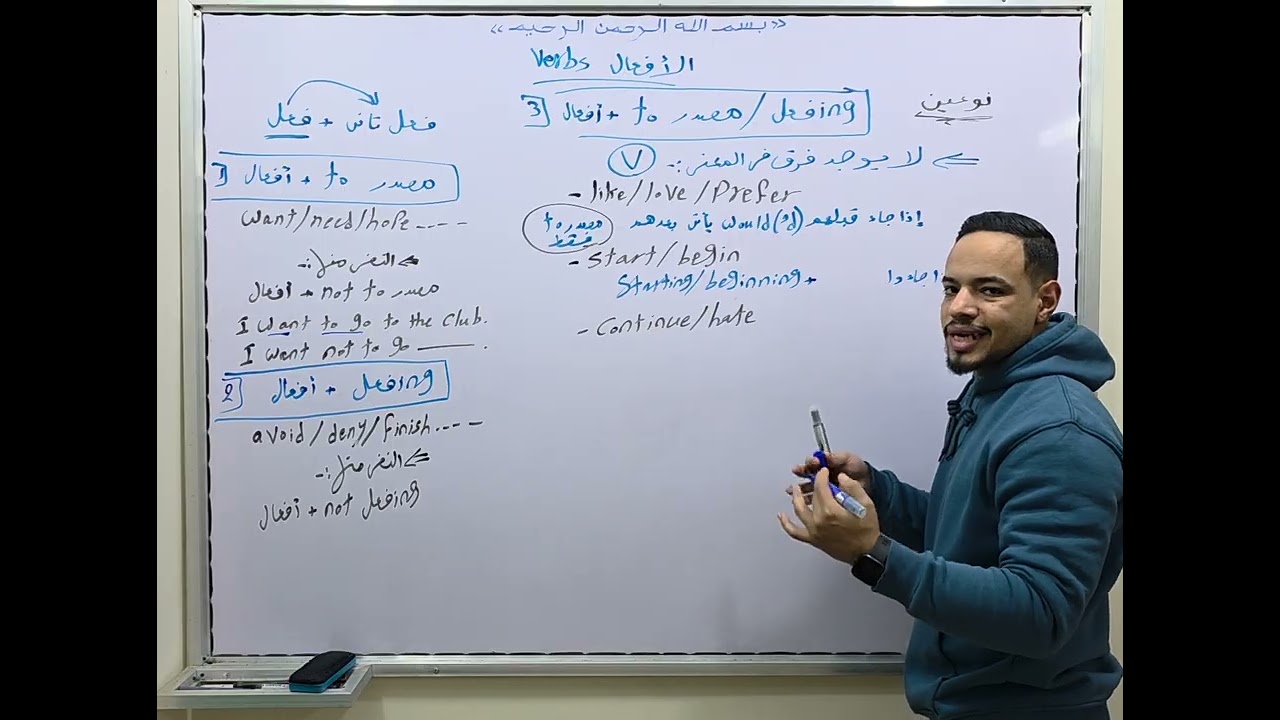 «بسم الله الرحمن الرحيم»
الأفعال Verbs
فعل + فعل تاني
1 أفعال + to مصدر
want/need/hope ----
النفي منها :-
أفعال + not to مصدر
I want to go to the club.
I want not to go ——.
2 أفعال + فعل ing
avoid/deny/finish ----
النفي منها :-
أفعال + not فعل ing
3 أفعال + to مصدر / فعل ing
نوعين
لا يوجد فرق في المعنى :- V
- like/love/Prefer
إذا جاء قبلهم would('d) يأتي بعدهم to مصدر فقط
- start/begin
Starting/beginning +
- Continue/hate